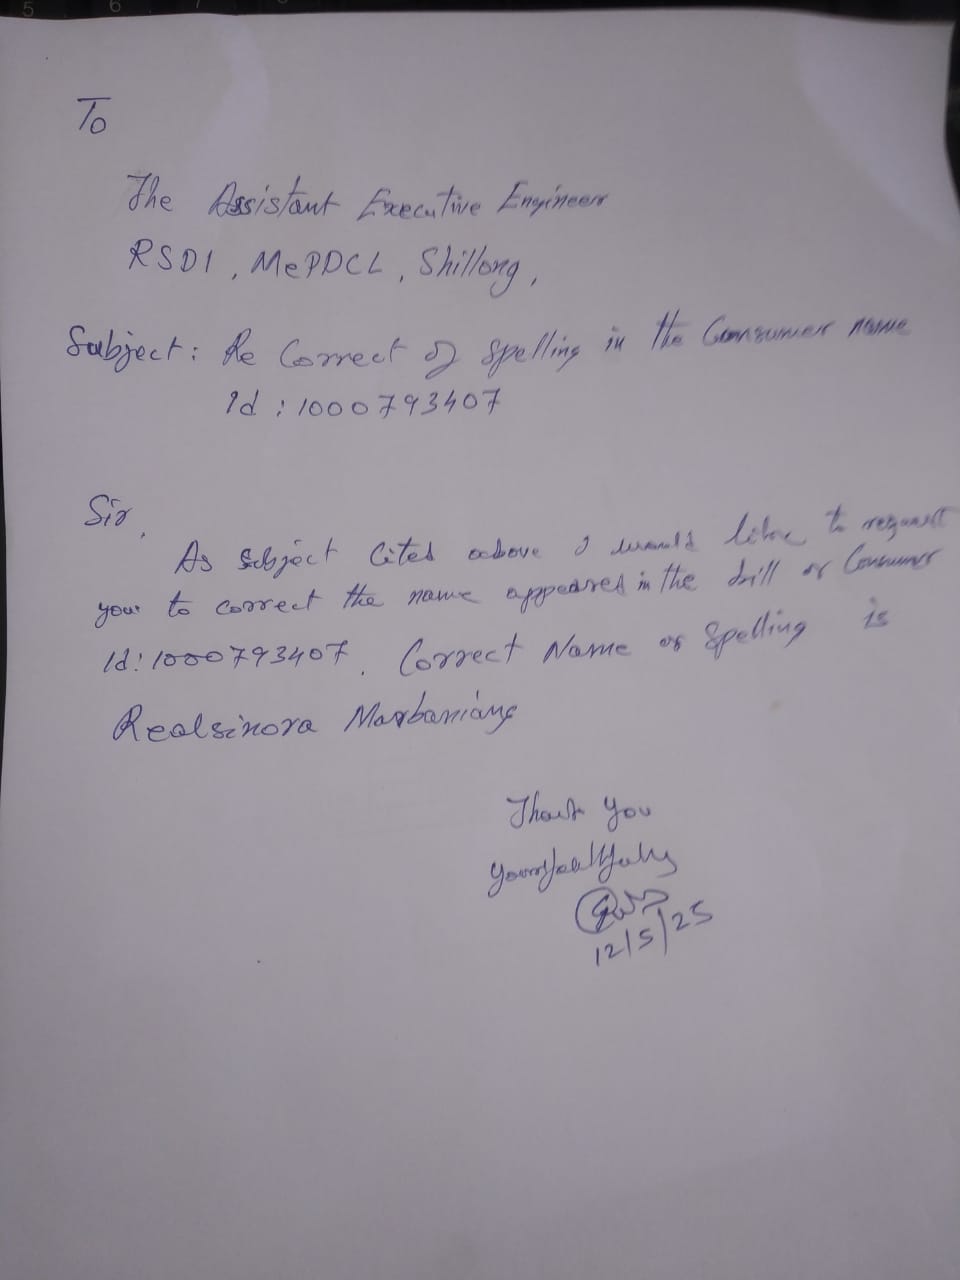 To
The Assistant Executive Engineer
RSD1, MePDCL, Shillong,
Subject: Re Correct of Spelling in the Consumer name
Id : 1000793407
Sir,
As subject Cited above I would like to request
you to correct the name appeared in the bill of Consumer
Id: 1000793407. Correct Name of Spelling is
Realsinora Marbaniang
Thank You
Yours faithfully
12/5/25